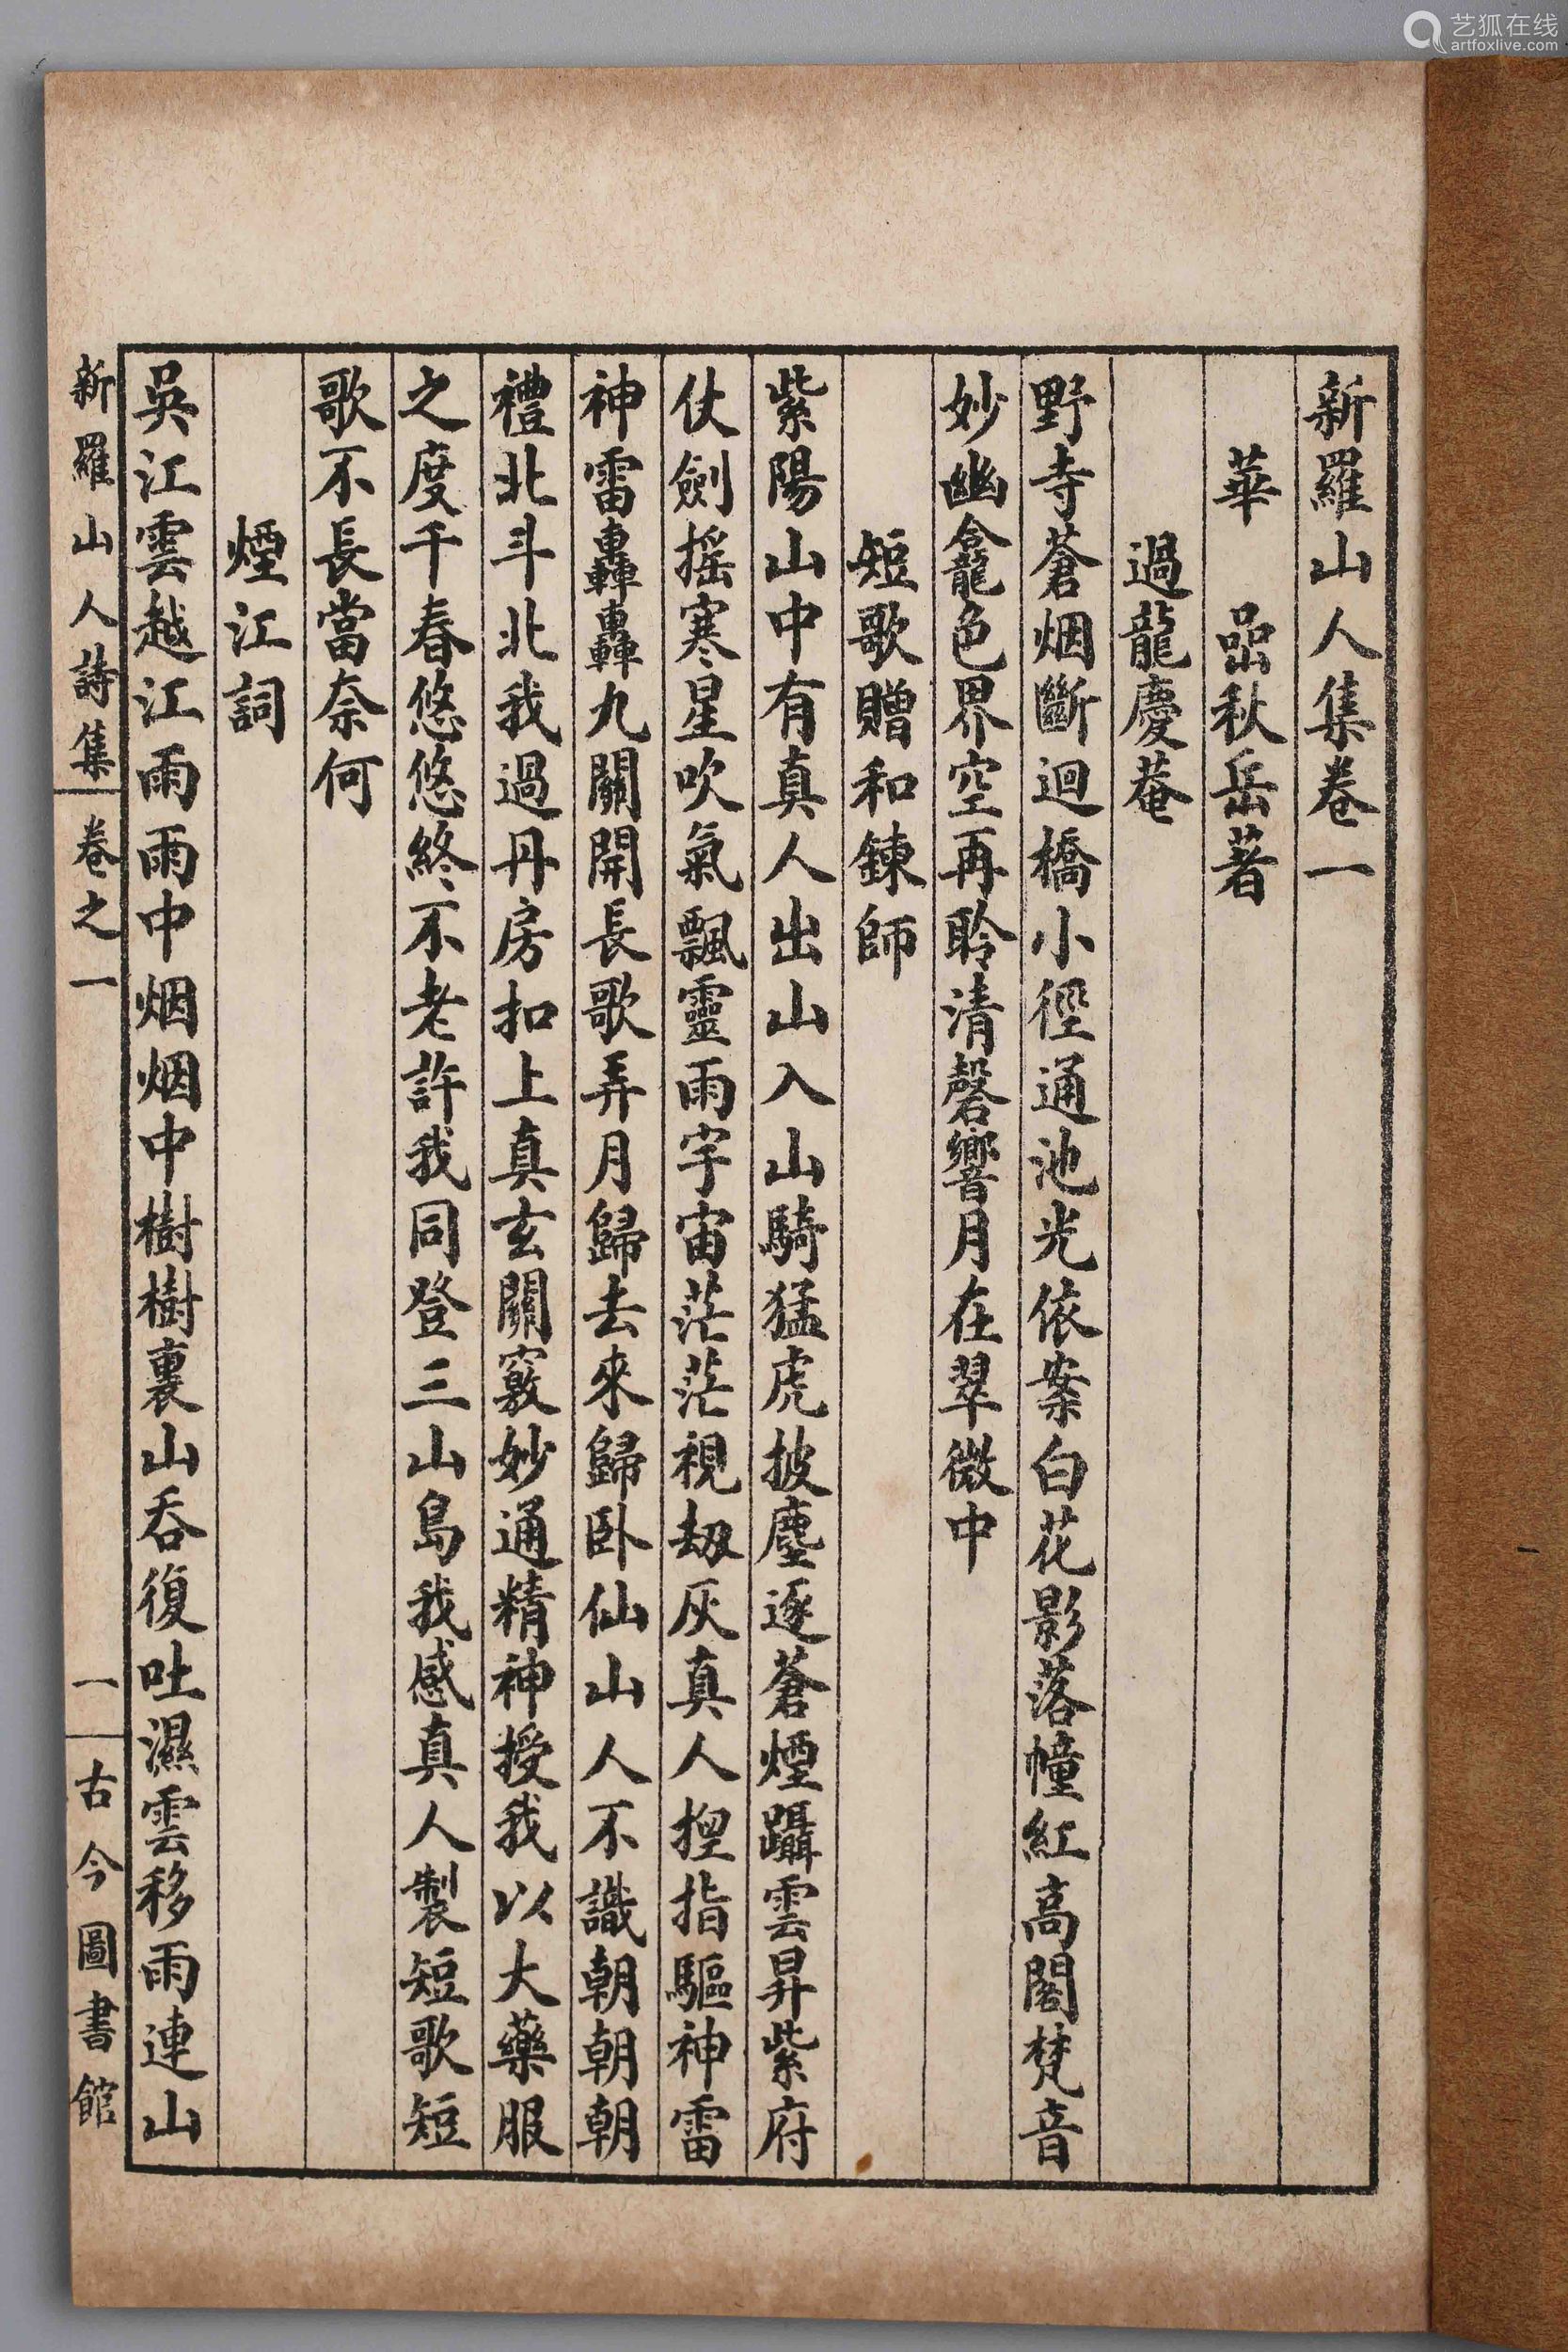 新羅山人集卷一
華嵒秋岳著
過龍慶菴
野寺蒼烟斷迴橋小徑通池光依案白花影落幢紅高閣梵音
妙幽龕色界空再聆清磬響月在翠微中
短歌贈和鍊師
紫陽山中有真人出山入山騎猛虎披塵逐蒼煙躡雲昇紫府
仗劍摇寒星吹氣飄靈雨宇宙茫茫視刼灰真人揑指驅神雷
神雷轟轟九關開長歌弄月歸去來歸卧仙山人不識朝朝朝
禮北斗北我過丹房扣上真玄關竅妙通精神授我以大藥服
之度千春悠悠終不老許我同登三山島我感真人製短歌短
歌不長當奈何
煙江詞
吳江雲越江雨雨中烟烟中樹樹裏山吞復吐濕雲移雨連山
新羅山人詩集 卷之一 一 古今圖書館
艺狐在线
artfoxlive.com